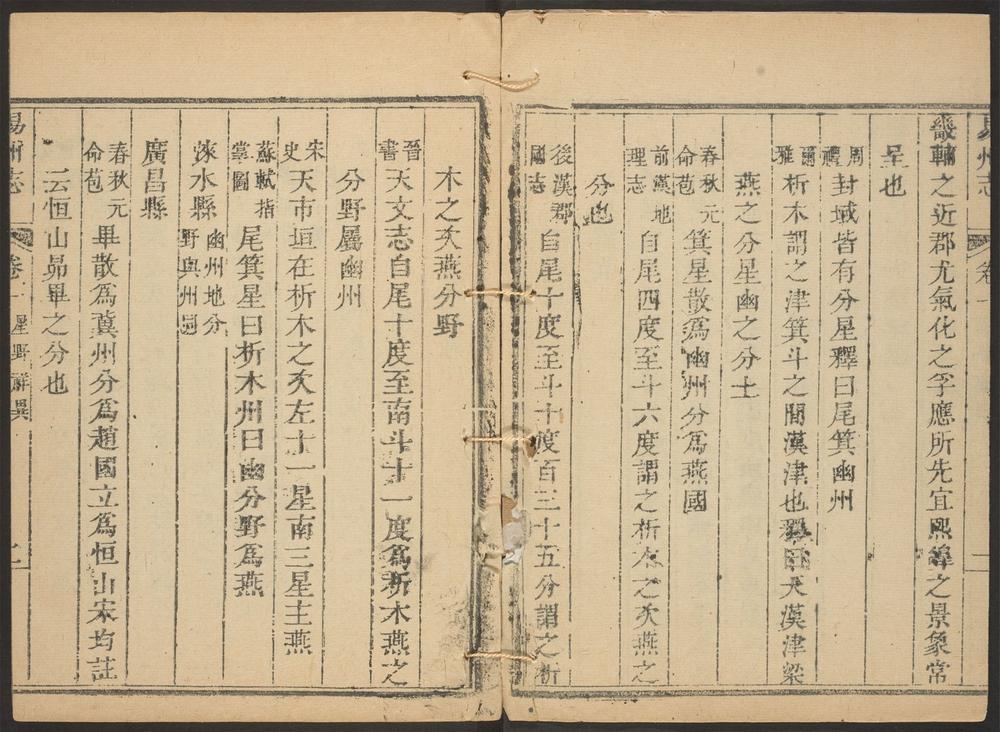 易州志 卷一
畿輔之近郡尤氣化之孚應所先宜熙皡之景象常
呈也
周禮 封域皆有分星釋曰尾箕幽州
爾雅 析木謂之津箕斗之間漢津也釋曰天漢津梁
燕之分星幽之分土
春秋元命苞 箕星散爲幽州分爲燕國
前漢地理志 自尾四度至斗六度謂之析木之次燕之
分也
後漢郡國志 自尾十度至斗十度百三十五分謂之析
木之次燕分野
晉書 天文志自尾十度至南斗十一度爲析木燕之
分野屬幽州
宋史 天市垣在析木之次左十一星南三星主燕
蘇軾指掌圖 尾箕星曰析木州曰幽分野爲燕
淶水縣 幽州地分野與州同
廣昌縣
春秋元命苞 畢散爲冀州分爲趙國立爲恒山宋均註
云恒山昴畢之分也
易州志 卷一 星野 祥異